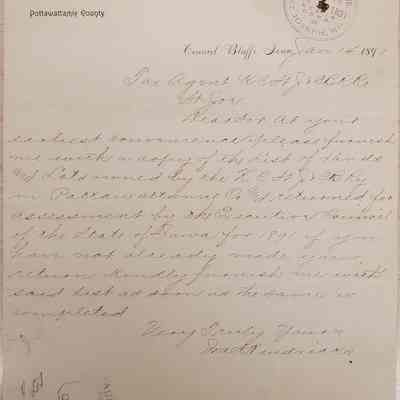 Pottawattamie County
Council Bluffs, Iowa, Jan 14 1891
Tax Agent K C St J & C B R R
St Joe
Dear Sir At your
earliest convenience please furnish
me with a copy of the list of lands
& Lots owned by the K C St J & C B Ry
in Pottawattamie Co & returned for
assessment by the Executive Council
of the State of Iowa for 1891 if you
have not already made your
return Kindly furnish me with
said list as soon as the same is
completed
Very Truly Yours